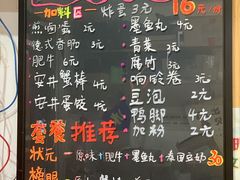 16元/份
加料区 炸蛋3元
煎肉蛋 3元 墨鱼丸 4元
港式香肠 3元 青菜 2元
肥牛 6元 腐竹 2元
安井蟹棒 4元 响铃卷 3元
安井蟹 4元 豆泡 2元
鸭脚 4元
加粉 2元
套餐推荐
状元 = 原味+肥牛+墨鱼丸+泰国豆奶 30
榜眼